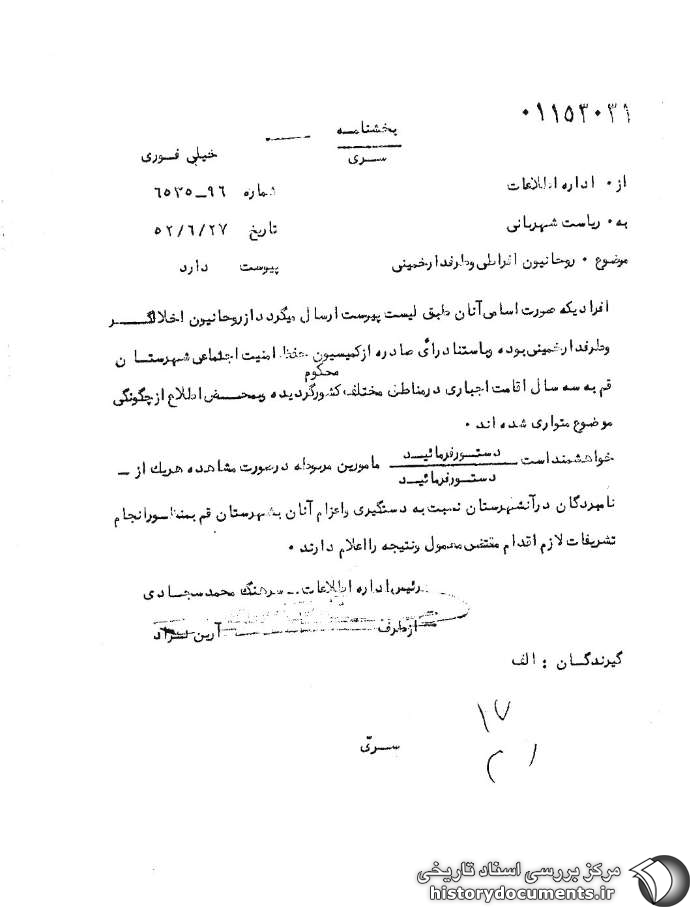 ۰۱۱۵۳۰۳۱
بخشنامه
سری
خیلی فوری
از ۰ اداره اطلاعات
شماره ۹۶ـ۶۵۳۵
به ۰ ریاست شهربانی
تاریخ ۵۲/۶/۲۷
موضوع ۰ روحانیون افراطی وطرفدارخمینی
پیوست دارد
افرادیکه صورت اسامی آنان طبق لیست پیوست ارسال میگردد ازروحانیون اخلالگر
وطرفدارخمینی بوده وباستناد رأی صادره ازکمیسیون حفظ امنیت اجتماعی شهرستان
محکوم
قم به سه سال اقامت اجباری درمناطق مختلف کشورگردیده وبمحض اطلاع ازچگونگی
موضوع متواری شده اند ۰
خواهشمنداست دستورفرمائید مامورین مربوطه درصورت مشاهده هریک از ـ
دستورفرمائید
نامبردگان درآنشهرستان نسبت به دستگیری واعزام آنان بشهرستان قم بمنظورانجام
تشریفات لازم اقدام مقتضی معمول ونتیجه رااعلام دارند ۰
رئیس اداره اطلاعات ـ سرهنگ محمدسجادی
ازطرف آرین نژاد
گیرندگان : الف
۱۷
سرّی
مرکز بررسی اسناد تاریخی
historydocuments.ir